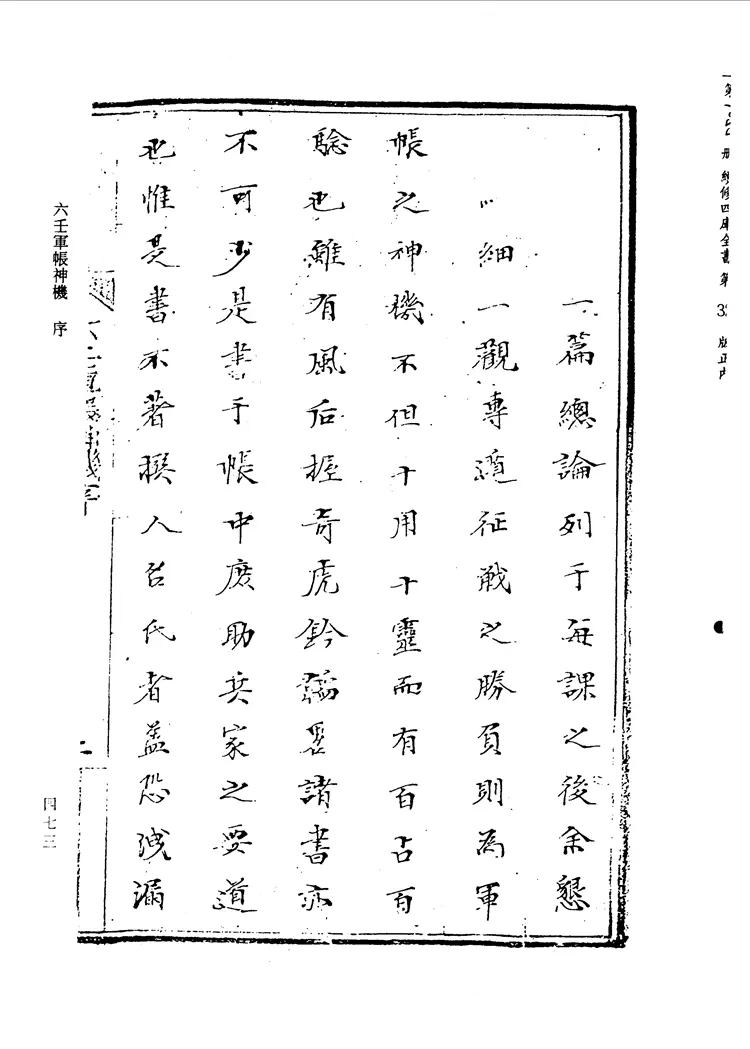 一篇總論列于每課之後余懇
細一觀專道征戰之勝負則為軍
帳之神機不但十用十靈而有百占百
騐也雖有風后握奇虎鈐韜畧諸書亦
不可少是書于帳中庶助兵家之要道
也惟是書不著撰人名氏者盖恐洩漏
六壬軍帳神機 序
四七三
續修四庫全書